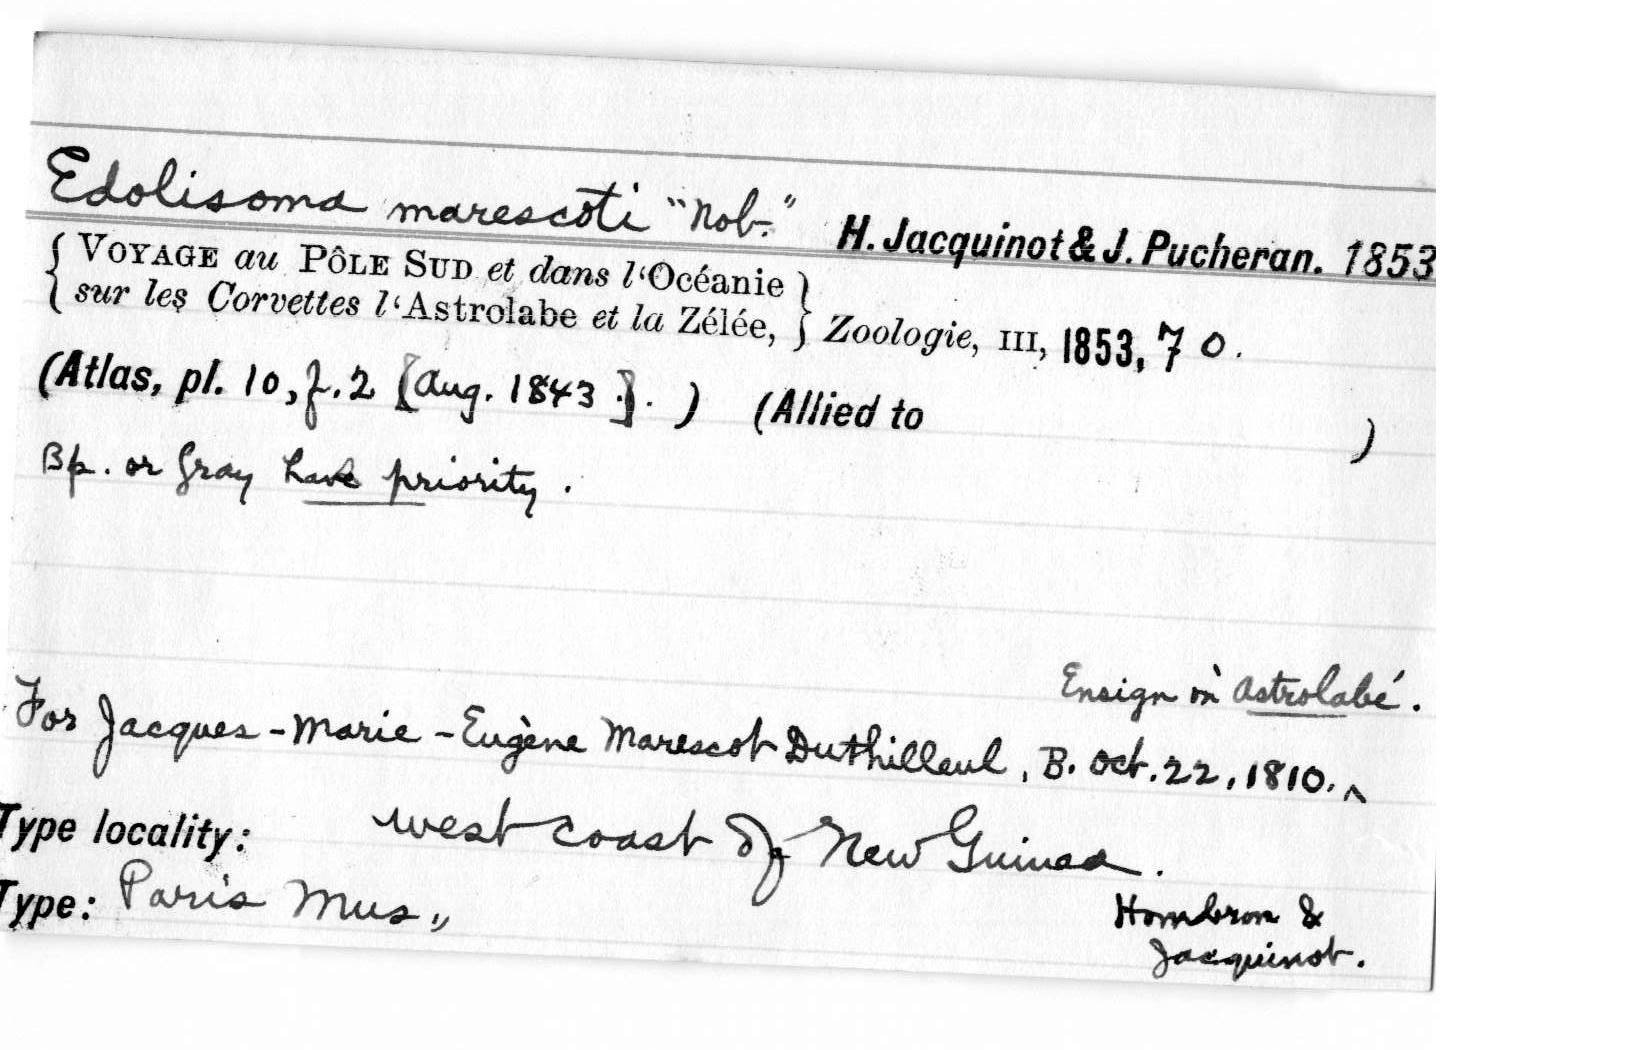 Edolisoma marescoti "Nob." H. Jacquinot & J. Pucheran. 1853
{ VOYAGE au PÔLE SUD et dans l'Océanie }
{ sur les Corvettes l'Astrolabe et la Zélée, } Zoologie, III, 1853, 70.
(Atlas, pl. 10, f. 2 [Aug. 1843.]. ) (Allied to )
Bp. or Gray have priority.
Ensign in Astrolabe.
For Jacques-Marie-Eugène Marescot Duthilleul, B. Oct. 22, 1810. ^
Type locality: West coast of New Guinea.
Type: Paris Mus.,,
Hombron &
Jacquinot.